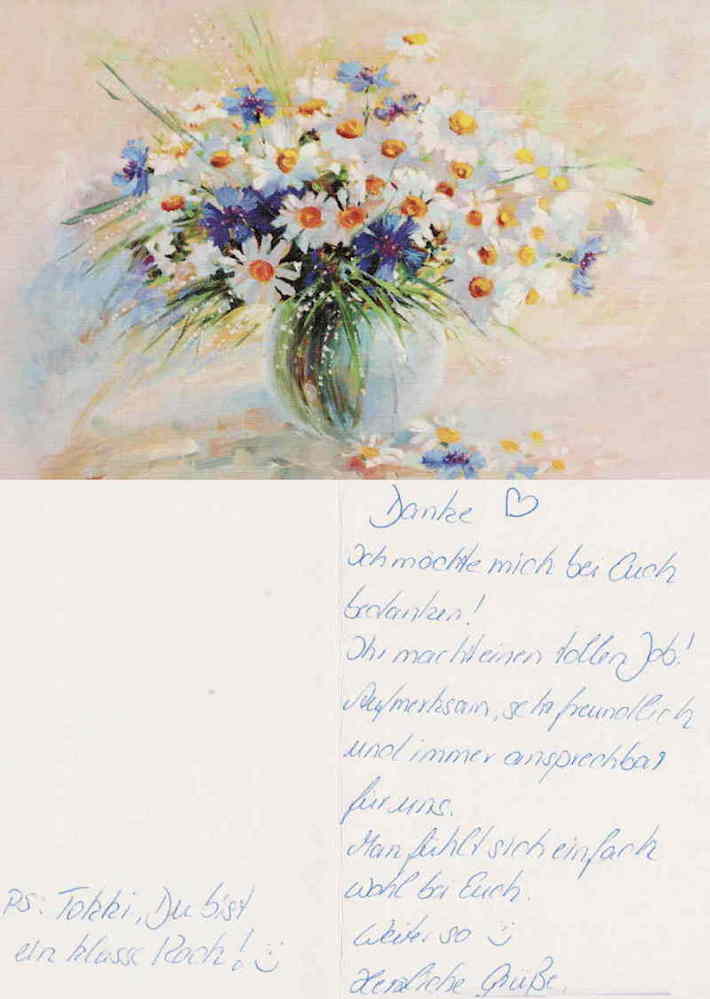 Danke ♡
Ich möchte mich bei Euch
bedanken!
Ihr macht einen tollen Job!
Aufmerksam, sehr freundlich
und immer ansprechbar
für uns.
Man fühlt sich einfach
wohl bei Euch.
Weiter so ☺
Herzliche Grüße
PS: Tokki, Du bist
ein klasse Koch! ☺